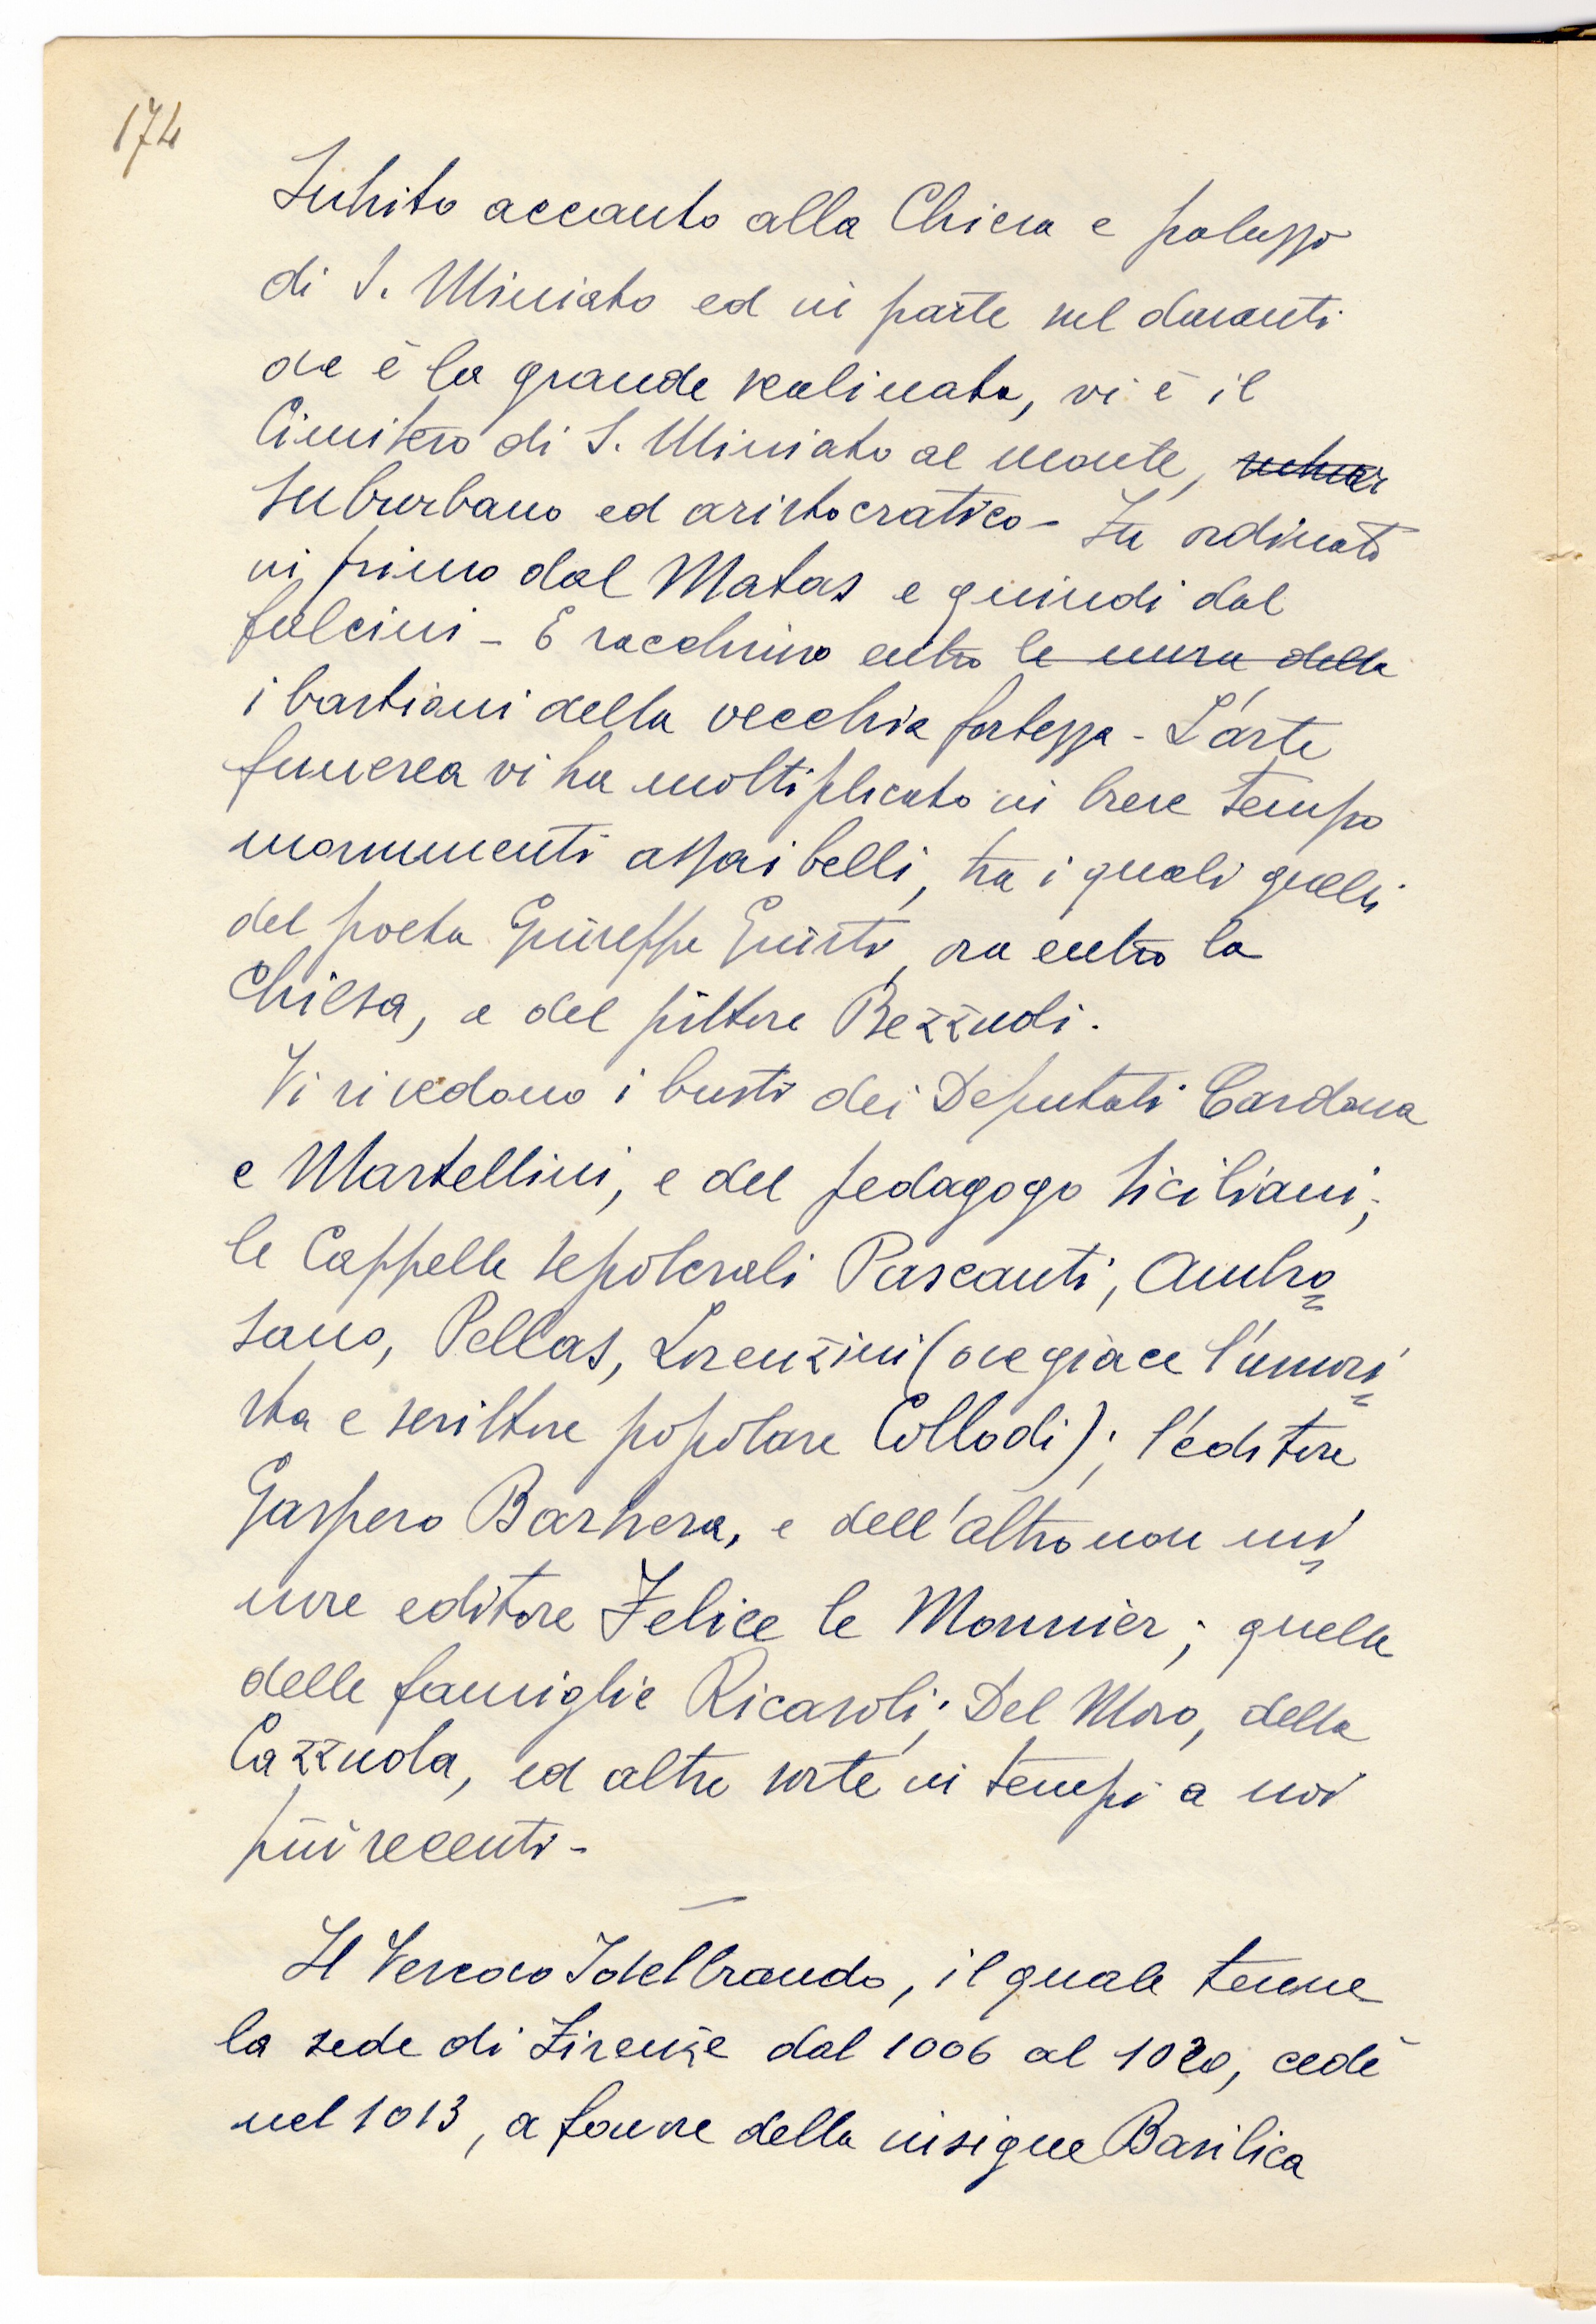 174
Subito accanto alla Chiesa e palazzo
di S. Miniato ed in parte sul davanti
ove è la grande scalinata, vi è il
Cimitero di S. Miniato al monte, subur
suburbano ed aristocratico - Fu ordinato
in primo dal Matas e quindi dal
falcini - È racchiuso entro le mura della
i bastioni della vecchia fortezza - L'arte
funerea vi ha moltiplicato in breve tempo
monumenti assai belli, tra i quali quelli
del poeta Giuseppe Giusti, ora entro la
Chiesa, e del pittore Bezzuoli.
Vi si vedono i busti dei Deputati Cardona
e Martellini, e del pedagogo Siciliani;
le Cappelle sepolcrali Pascanti, Ambro=
sano, Pellas, Lorenzini (ove giace l'umori=
sta e scrittore popolare Collodi); l'editore
Gaspero Barbera, e dell'altro non mi=
nore editore Felice le Monnier; quelle
delle famiglie Ricasoli; Del Moro, della
Cazzuola, ed altre sorte in tempi a noi
più recenti -
Il Vescovo Idelbrando, il quale tenne
la sede di Firenze dal 1006 al 1020, cedè
nel 1013, a favore della insigne Basilica